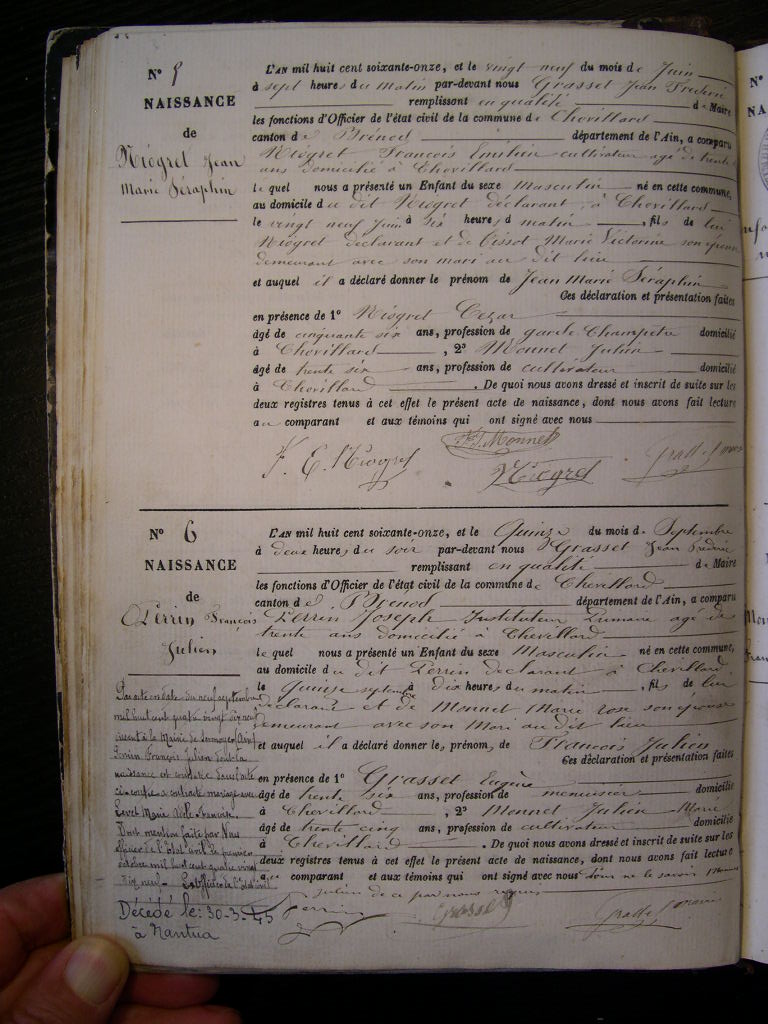 N° 5
NAISSANCE
de
Niogret Jean
Marie Séraphin
L'AN mil huit cent soixante-onze, et le vingt neuf du mois de Juin
à sept heures du matin par-devant nous Grasset Jean Frederic
remplissant en qualité de Maire
les fonctions d'Officier de l'état civil de la commune de Chevillard
canton de Brénod département de l'Ain, a comparu
Niogret François Emilien cultivateur agé de trente
ans domicilié à Chevillard
le quel nous a présenté un Enfant du sexe Masculin né en cette commune,
au domicile du dit Niogret déclarant, à Chevillard
le vingt neuf Juin à six heures du matin, fils de lui
Niogret déclarant et de Bissot Marie Victorine son épouse
demeurant avec son mari au dit lieu
et auquel il a déclaré donner le prénom de Jean Marie Séraphin
Ces déclaration et présentation faites
en présence de 1° Niogret Cezar
âgé de cinquante six ans, profession de garde Champêtre domicilié
à Chevillard, 2° Monnet Julien
âgé de trente six ans, profession de cultivateur domicilié
à Chevillard. De quoi nous avons dressé et inscrit de suite sur les
deux registres tenus à cet effet le présent acte de naissance, dont nous avons fait lecture
au comparant et aux témoins qui ont signé avec nous
F. E. Niogret
Monnet
Niogret
N° 6
NAISSANCE
de
Perrin François
Julien
L'AN mil huit cent soixante-onze, et le Quinze du mois de Septembre
à deux heures du soir par-devant nous Grasset Jean Frederic
remplissant en qualité de Maire
les fonctions d'Officier de l'état civil de la commune de Chevillard
canton de Brénod département de l'Ain, a comparu
Perrin Joseph Instituteur Primaire agé de
trente ans domicilié à Chevillard
le quel nous a présenté un Enfant du sexe Masculin né en cette commune,
au domicile du dit Perrin declarant à Chevillard
le Quinze septembre à dix heures du matin, fils de lui
declarant et de Monnet Marie rose son épouse
demeurant avec son Mari au dit lieu
et auquel il a déclaré donner les prénoms de Francois Julien
Ces déclaration et présentation faites
en présence de 1° Grasset Eugène
âgé de trente six ans, profession de menuisier domicilié
à Chevillard, 2° Monnet Julien Marie
âgé de trente cinq ans, profession de cultivateur domicilié
à Chevillard. De quoi nous avons dressé et inscrit de suite sur les
deux registres tenus à cet effet le présent acte de naissance, dont nous avons fait lecture
au comparant et aux témoins qui ont signé avec nous sauf ne le savoir Monnet
Julien de ce par nous requis
Perrin
Grasset
Par acte en date du neuf septembre
mil huit cent quatre vingt dix neuf
dressé à la Mairie de (Ain)
Perrin François Julien dont la
naissance est constatée dans l'acte
ci contre a contracté mariage avec
Marie
Dont mention faite par Nous
officier de l'Etat civil le premier
octobre mil huit cent quatre vingt
dix neuf. L'officier de l'Etat civil
Décédé le: 30-3-45
à Nantua